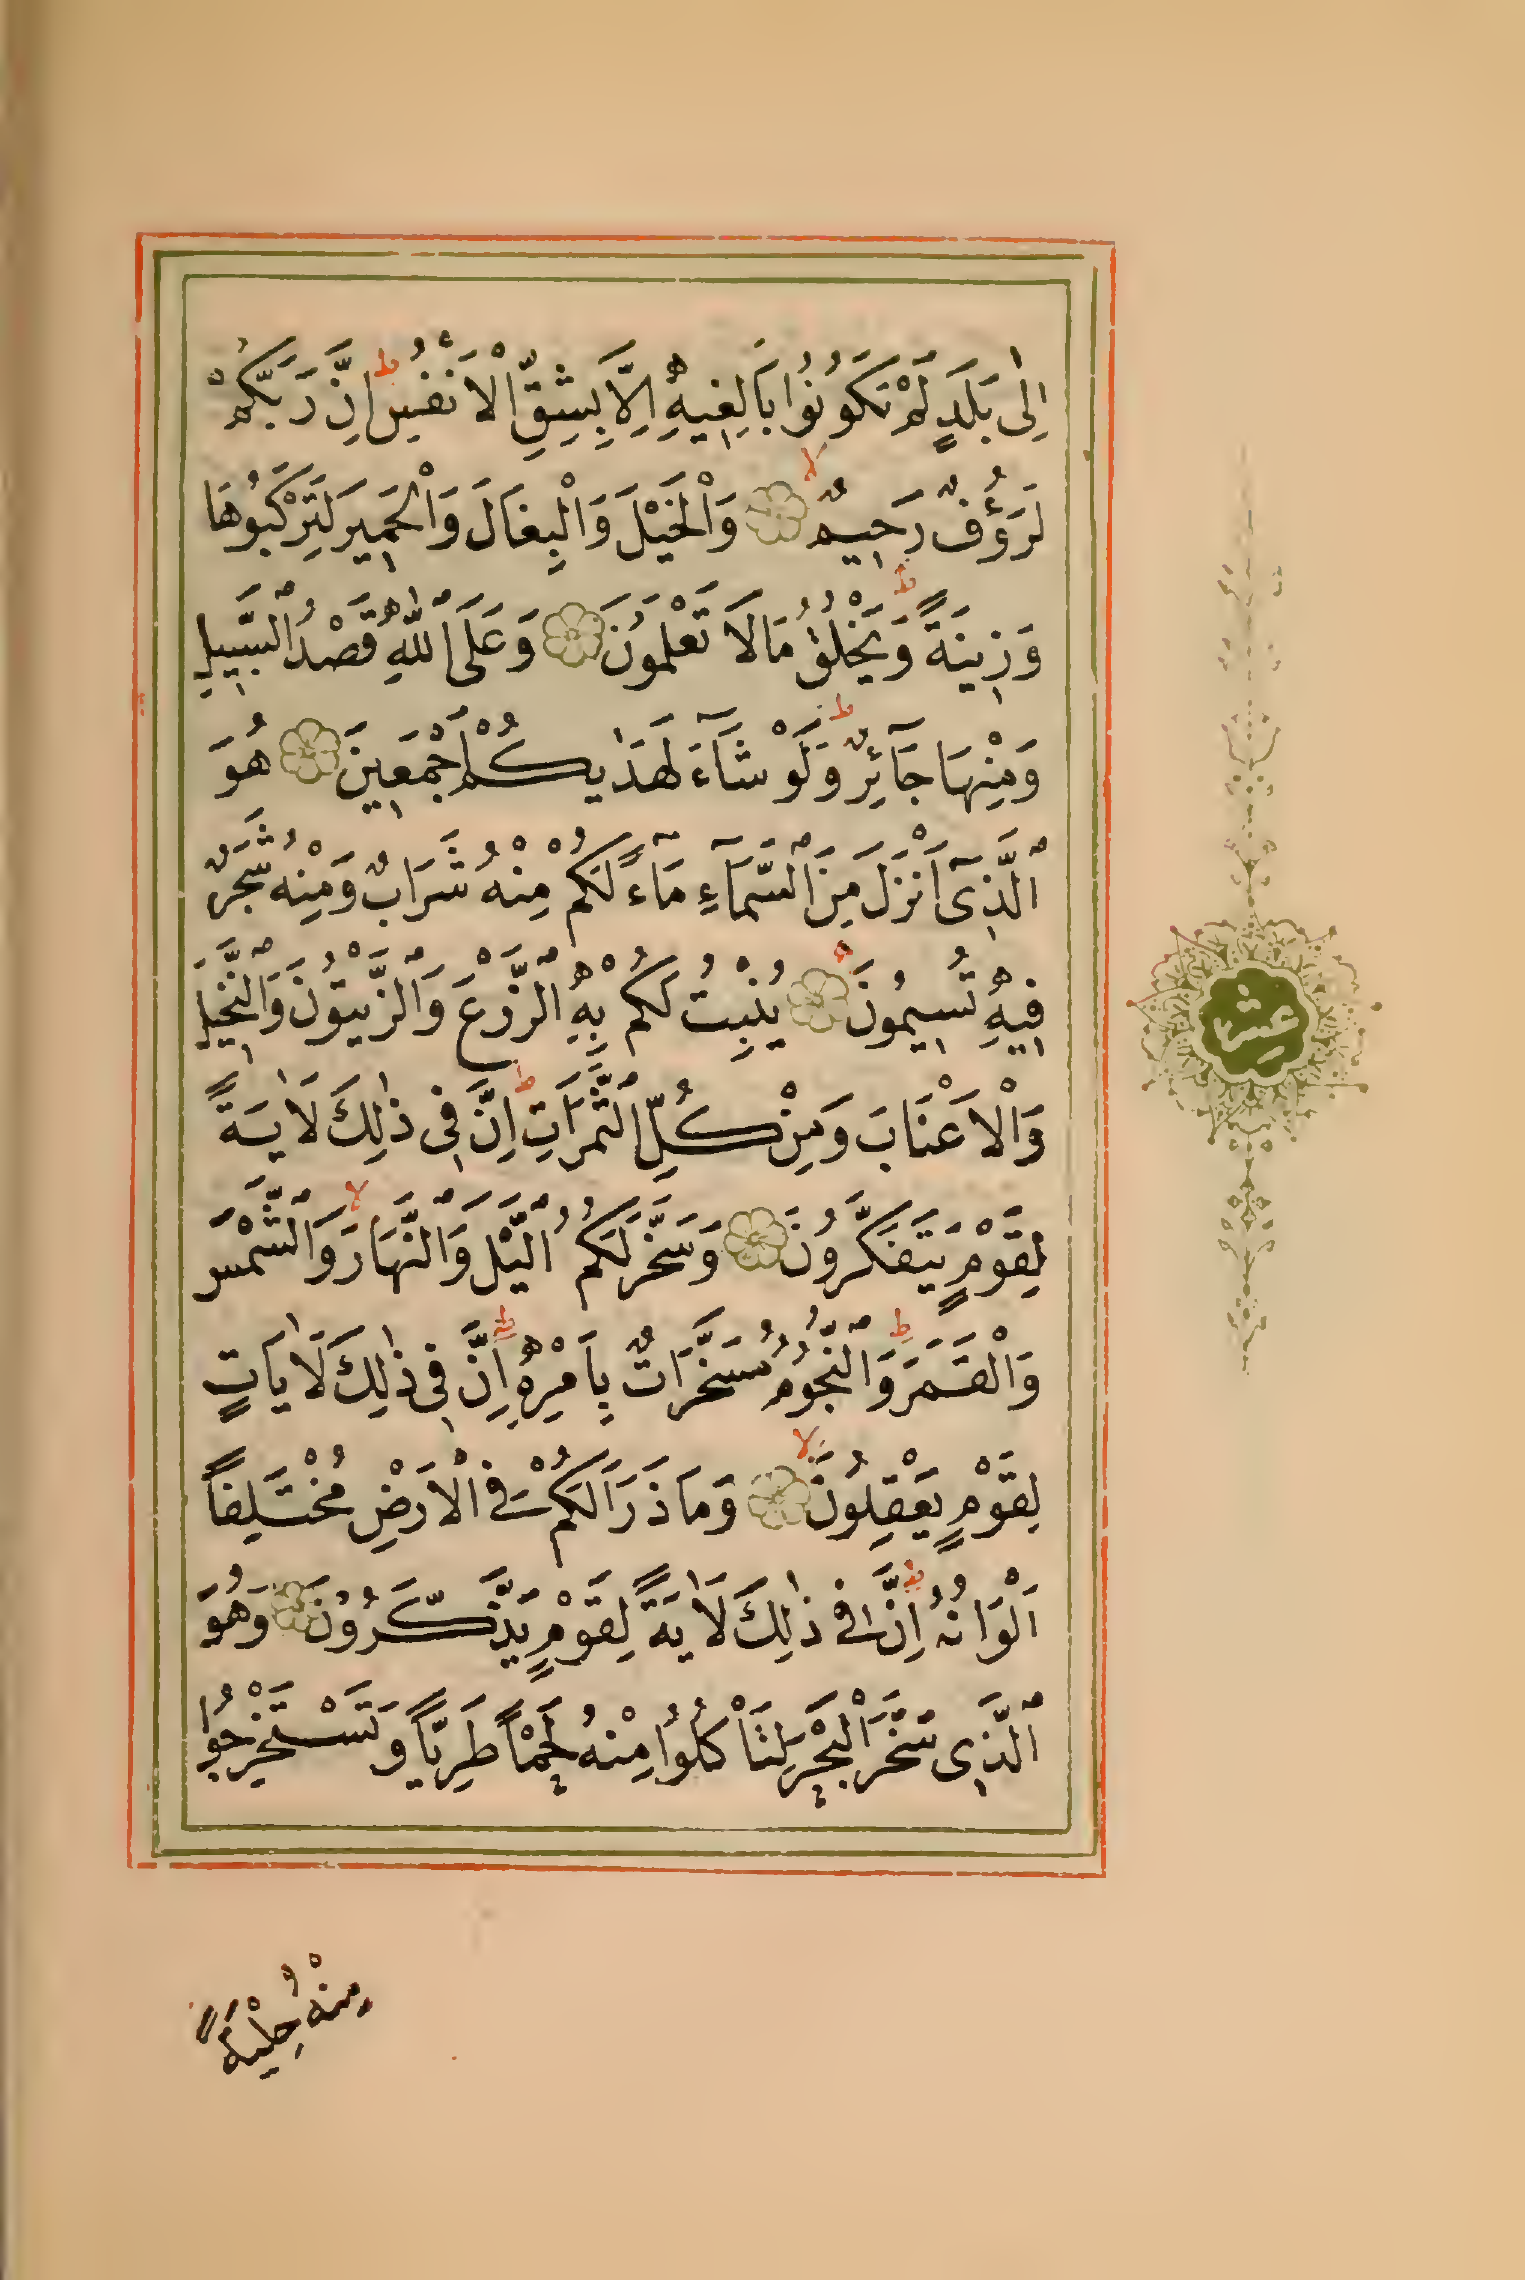 اِلٰى بَلَدٍ لَمْ تَكُونُوا بَالِغِيهِ اِلَّا بِشِقِّ الْاَنْفُسِ ط اِنَّ رَبَّكُمْ
لَرَؤُفٌ رَحِيمٌ لا وَالْخَيْلَ وَالْبِغَالَ وَالْحَمِيرَ لِتَرْكَبُوهَا
وَزِينَةً ط وَيَخْلُقُ مَا لَا تَعْلَمُونَ وَعَلَى اللّٰهِ قَصْدُ السَّبِيلِ
وَمِنْهَا جَآئِرٌ ط وَلَوْ شَآءَ لَهَدٰيكُمْ اَجْمَعِينَ هُوَ
الَّذِىٓ اَنْزَلَ مِنَ السَّمَآءِ مَآءً لَكُمْ مِنْهُ شَرَابٌ وَمِنْهُ شَجَرٌ
فِيهِ تُسِيمُونَ ه يُنْبِتُ لَكُمْ بِهِ الزَّرْعَ وَالزَّيْتُونَ وَالنَّخِيلَ
وَالْاَعْنَابَ وَمِنْ كُلِّ الثَّمَرَاتِ ط اِنَّ فِى ذٰلِكَ لَاٰيَةً
لِقَوْمٍ يَتَفَكَّرُونَ وَسَخَّرَ لَكُمُ الَّيْلَ وَالنَّهَارَ لا وَالشَّمْسَ
وَالْقَمَرَ ط وَالنُّجُومُ مُسَخَّرَاتٌ بِاَمْرِهِ ط اِنَّ فِى ذٰلِكَ لَاٰيَاتٍ
لِقَوْمٍ يَعْقِلُونَ لا وَمَا ذَرَاَ لَكُمْ فِى الْاَرْضِ مُخْتَلِفًا
اَلْوَانُهُ ط اِنَّ فِى ذٰلِكَ لَاٰيَةً لِقَوْمٍ يَذَّكَّرُونَ وَهُوَ
الَّذِى سَخَّرَ الْبَحْرَ لِتَاْكُلُوا مِنْهُ لَحْمًا طَرِيًّا وَتَسْتَخْرِجُوا
مِنْهُ حِلْيَةً
عشر